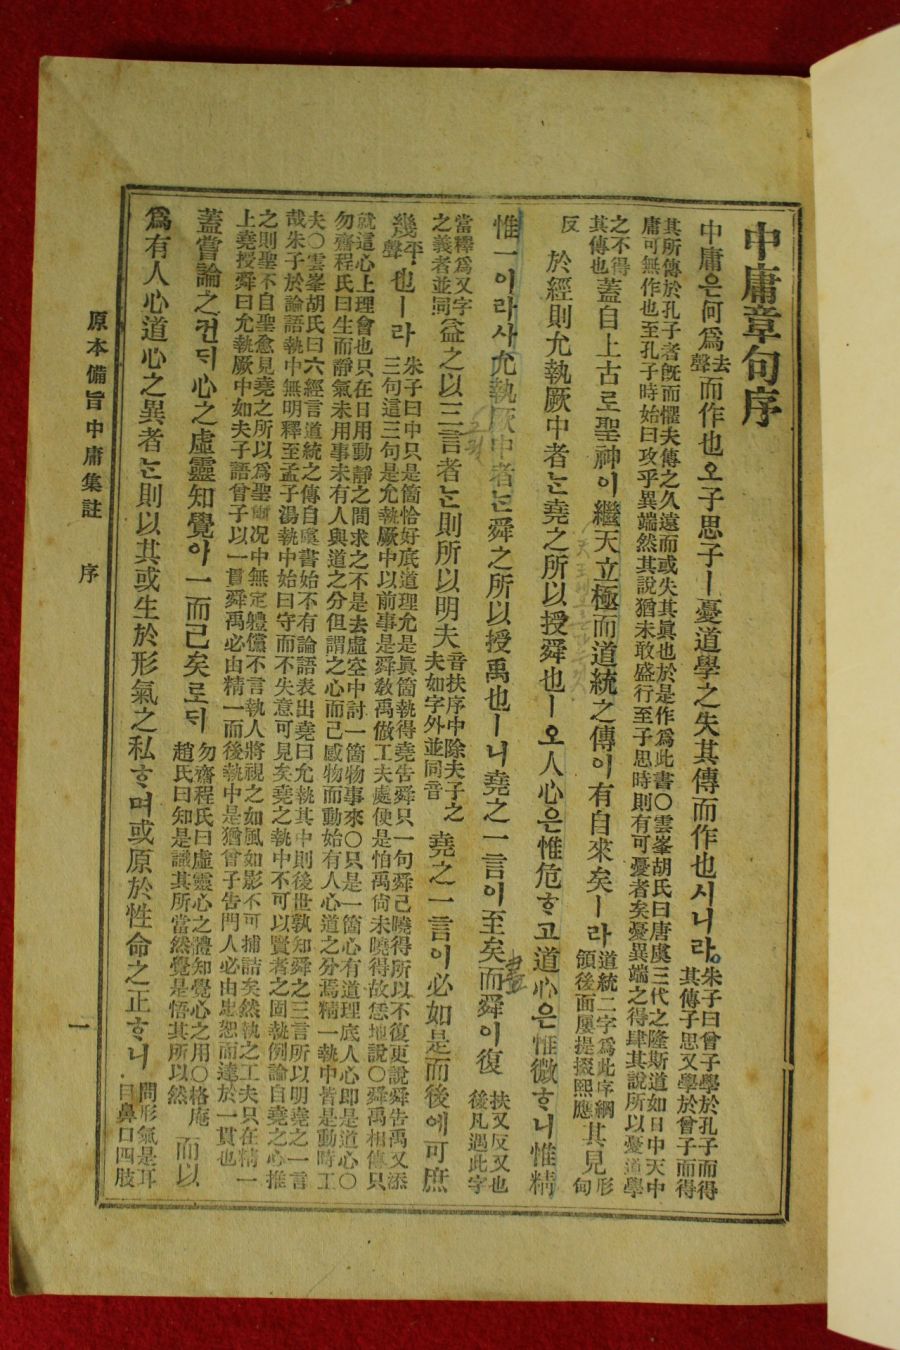 中庸章句序
中庸은何爲去聲而作也오子思子ㅣ憂道學之失其傳而作也시니라朱子曰曾子學於孔子而得
其傳子思又學於曾子而得
其所傳於孔子者旣而懼夫傳之久遠而或失其眞也於是作爲此書〇雲峯胡氏曰唐虞三代之隆斯道如日中天中
庸可無作也至孔子時始曰攻乎異端然其說猶未敢盛行至子思時則有可憂者矣憂異端之得肆其說所以憂道學
之不得
其傳也蓋自上古로聖神이繼天立極而道統之傳이有自來矣ㅣ라道統二字爲此序綱
領後面屢提掇照應其見形
甸
反於經則允執厥中者는堯之所以授舜也ㅣ오人心은惟危ᄒᆞ고道心은惟微ᄒᆞ니惟精
惟一이라사允執厥中者는舜之所以授禹也ㅣ니堯之一言이至矣而舜이復扶又反又也
後凡遇此字
當釋爲又字
之義者並同益之以三言者는則所以明夫音扶序中除夫子之
夫如字外並同音堯之一言이必如是而後에可庶
幾平聲也ㅣ라朱子曰中只是箇恰好底道理允是眞箇執得堯告舜只一句舜已曉得所以不復更說舜告禹又添
三句這三句是允執厥中以前事是舜敎禹倣工夫處便是怕禹尙未曉得故恁地說〇舜禹相傳只
就這心上理會也只在日用動靜之間求之不是去虛空中討一箇物事來〇只是一箇心有道理底人心卽是道心〇
勿齋程氏曰生而靜氣未用事未有人與道之分但謂之心而已感物而動始有人心道心之分焉精一執中皆是動時工
夫〇雲峯胡氏曰六經言道統之傳自虞書始不有論語表出堯曰允執其中則後世孰知舜之三言所以明堯之一言
哉朱子於論語執中無明釋至孟子湯執中始曰守而不失意可見矣堯之執中不可以賢者之固執例論自堯之心推
之則聖不自聖愈見堯之所以爲聖爾況中無定軆儻不言執人將視之如風如影不可捕詰矣然執之工夫只在精一
上堯授舜曰允執厥中如夫子語曾子以一貫舜禹必由精一而後執中是猶曾子告門人必由忠恕而達於一貫也
蓋嘗論之컨ᄃᆡ心之虛靈知覺아一而已矣로ᄃᆡ勿齋程氏曰虛靈心之體知覺心之用〇格庵
趙氏曰知是識其所當然覺是悟其所以然而以
爲有人心道心之異者는則以其或生於形氣之私ᄒᆞ며或原於性命之正ᄒᆞ니問形氣是耳
目鼻口四肢
原本備旨中庸集註 序 一